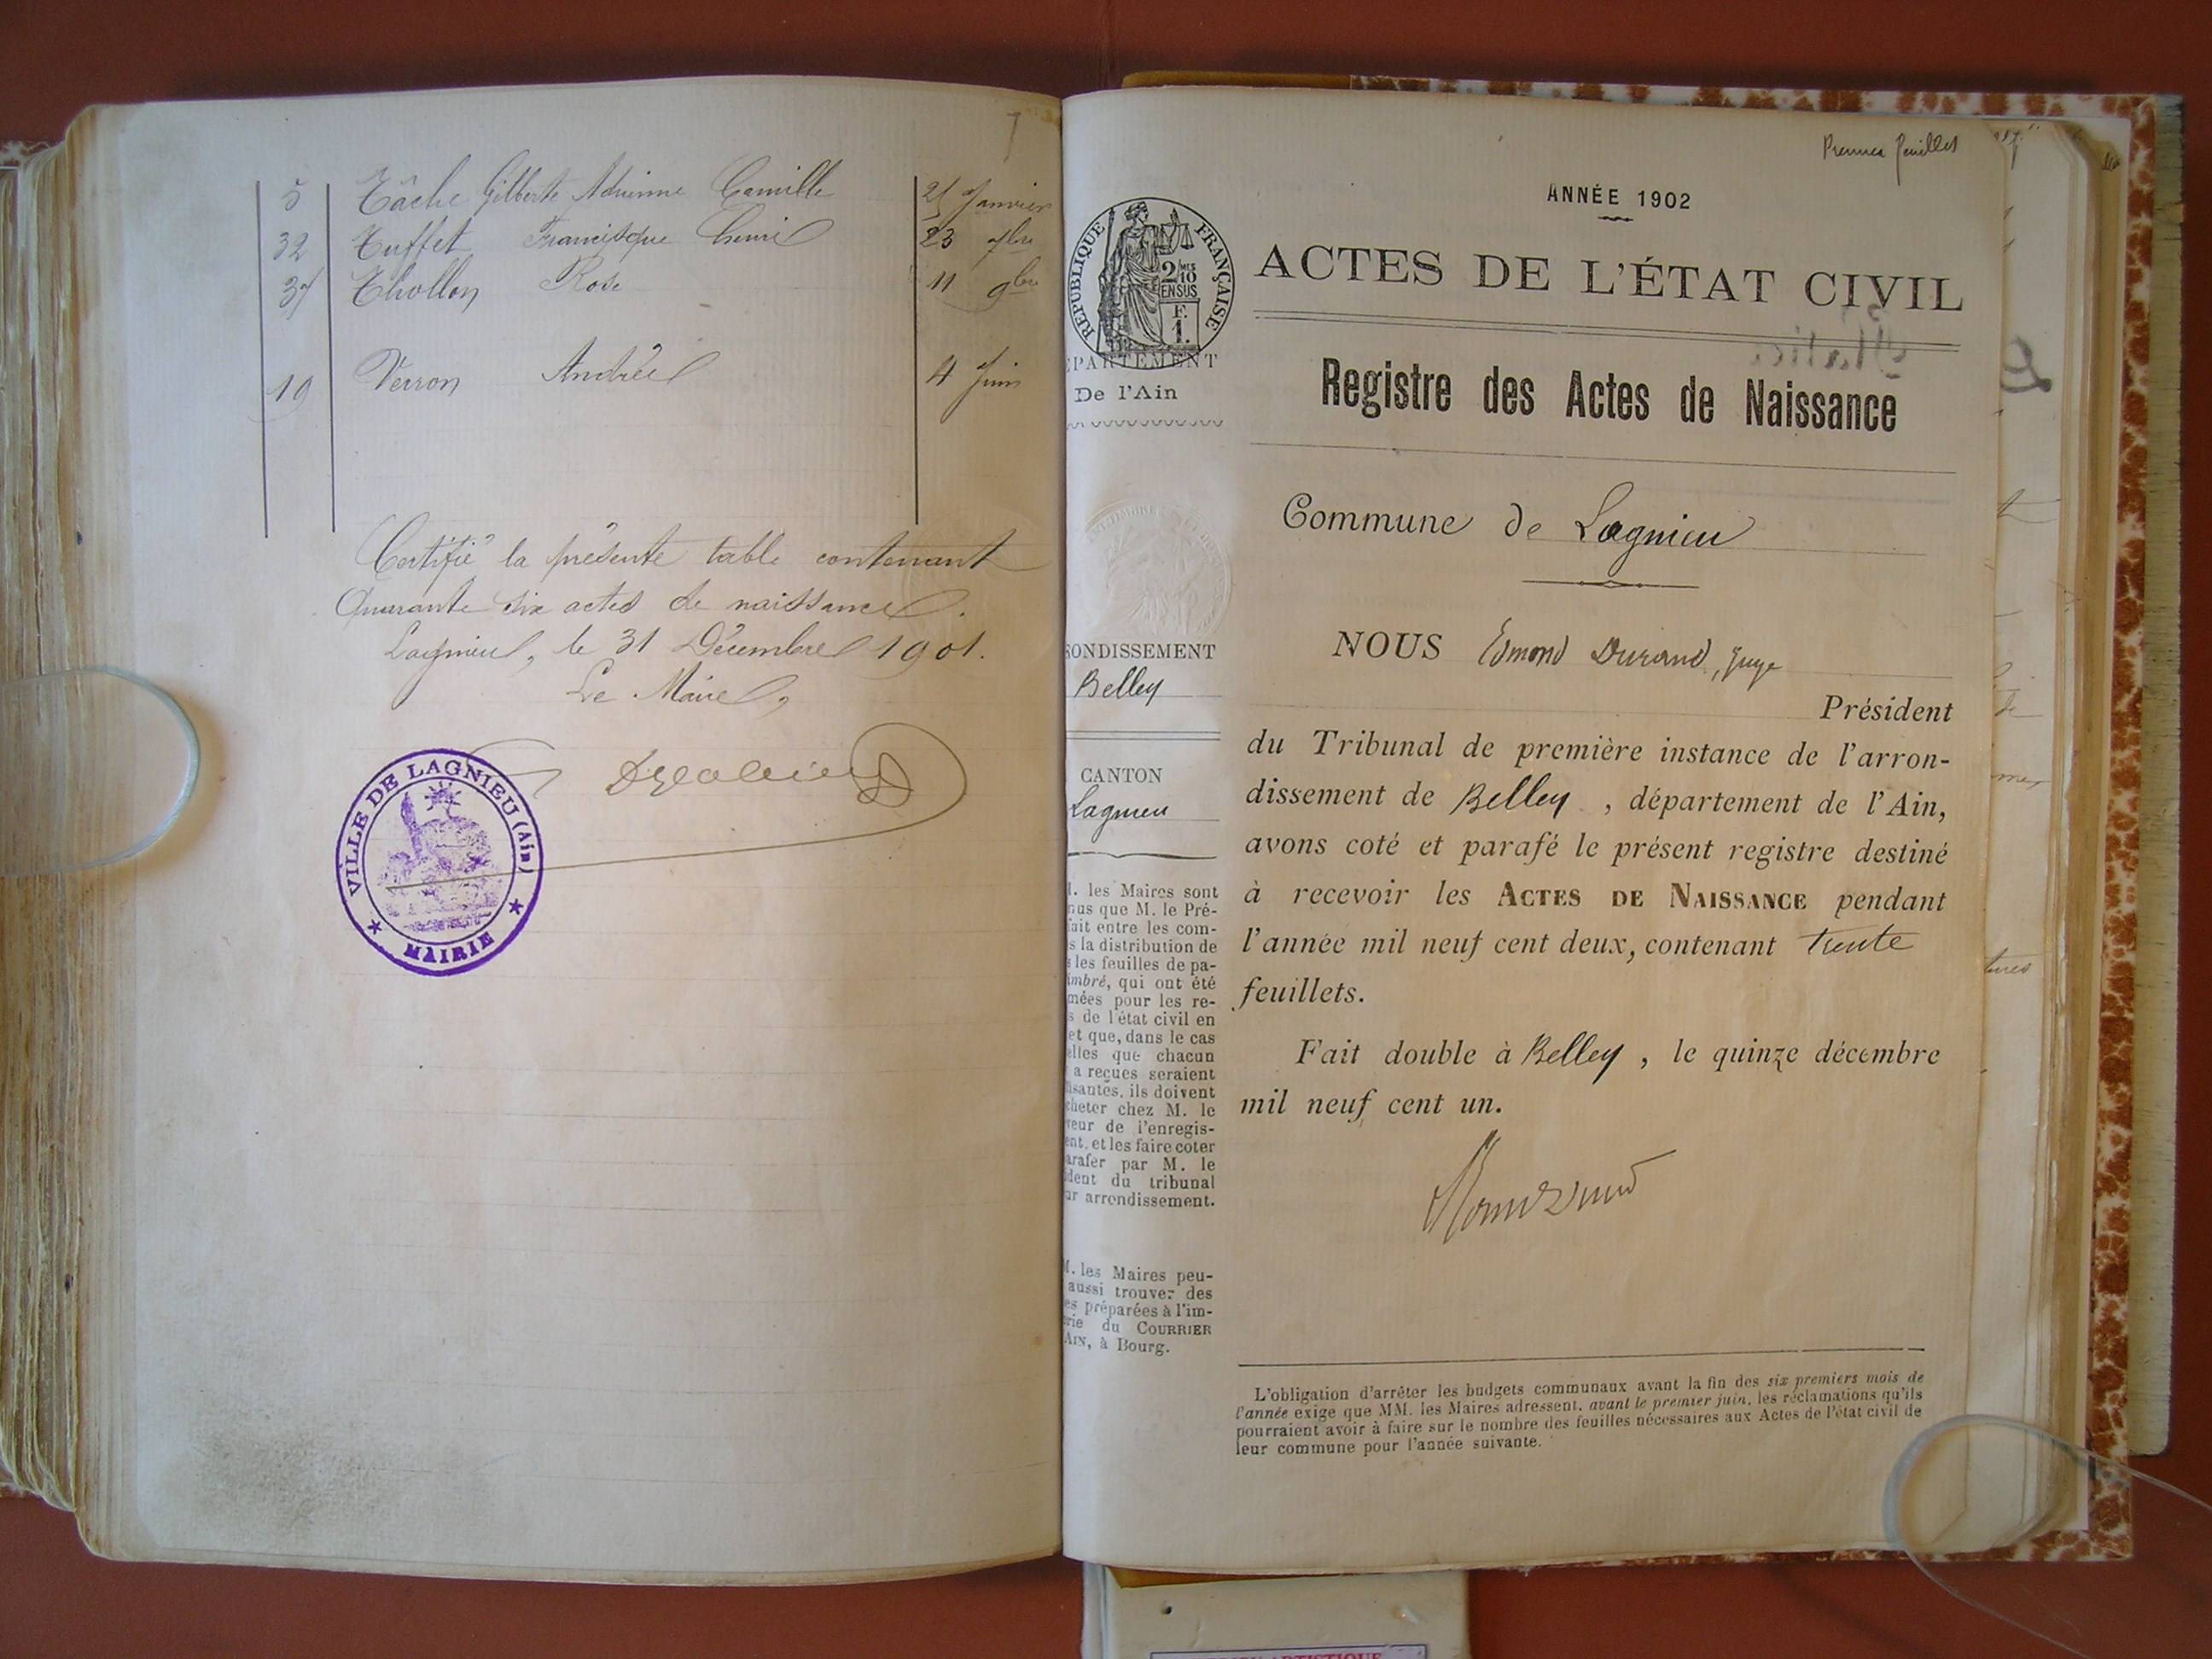 5 Tâche Gilberte Adrienne Camille 25 Janvier
32 Tuffet Francisque Henri 23 7bre
37 Thollon Rose 11 9bre
19 Verron Andrée 4 Juin
Certifié la présente table contenant
Quarante six actes de naissance.
Lagnieu, le 31 Décembre 1901.
Le Maire,
VILLE DE LAGNIEU (Ain)
MAIRIE
Premier feuillet
ANNÉE 1902
RÉPUBLIQUE FRANÇAISE
2/10 MES
EN SUS
F.
1.
ACTES DE L'ÉTAT CIVIL
ÉPARTEMENT
De l'Ain
Registre des Actes de Naissance
Commune de Lagnieu
NOUS Edmond Durand, Juge
Président
du Tribunal de première instance de l'arron-
dissement de Belley , département de l'Ain,
avons coté et parafé le présent registre destiné
à recevoir les ACTES DE NAISSANCE pendant
l'année mil neuf cent deux, contenant trente
feuillets.
Fait double à Belley , le quinze décembre
mil neuf cent un.
ONDISSEMENT
Belley
CANTON
Lagnieu
. les Maires sont
nus que M. le Pré-
fait entre les com-
s la distribution de
les feuilles de pa-
imbré, qui ont été
mées pour les re-
s de l'état civil en
et que, dans le cas
elles que chacun
a reçues seraient
isantes, ils doivent
cheter chez M. le
veur de l'enregis-
ent, et les faire coter
arafer par M. le
ident du tribunal
ur arrondissement.
M. les Maires peu-
aussi trouver des
es préparées à l'im-
rie du COURRIER
AIN, à Bourg.
L'obligation d'arrêter les budgets communaux avant la fin des six premiers mois de
l'année exige que MM. les Maires adressent, avant le premier juin, les réclamations qu'ils
pourraient avoir à faire sur le nombre des feuilles nécessaires aux Actes de l'état civil de
leur commune pour l'année suivante.